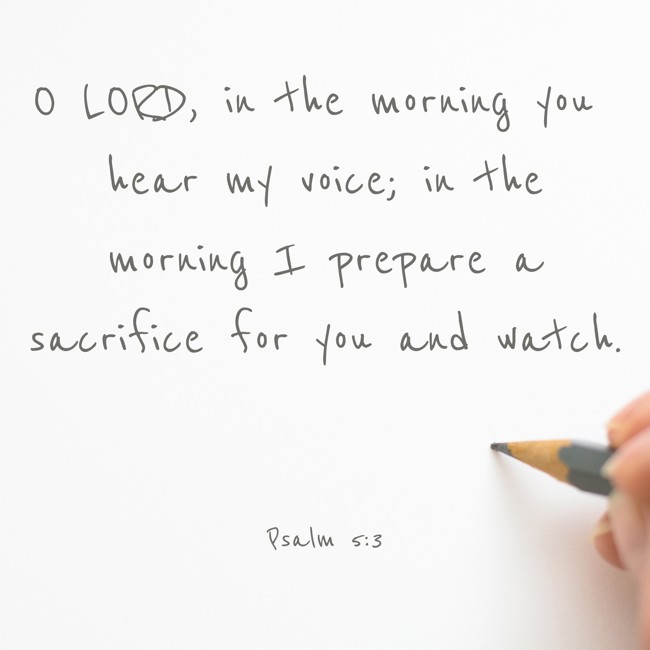 O LORD, in the morning you
hear my voice; in the
morning I prepare a
sacrifice for you and watch.
Psalm 5:3